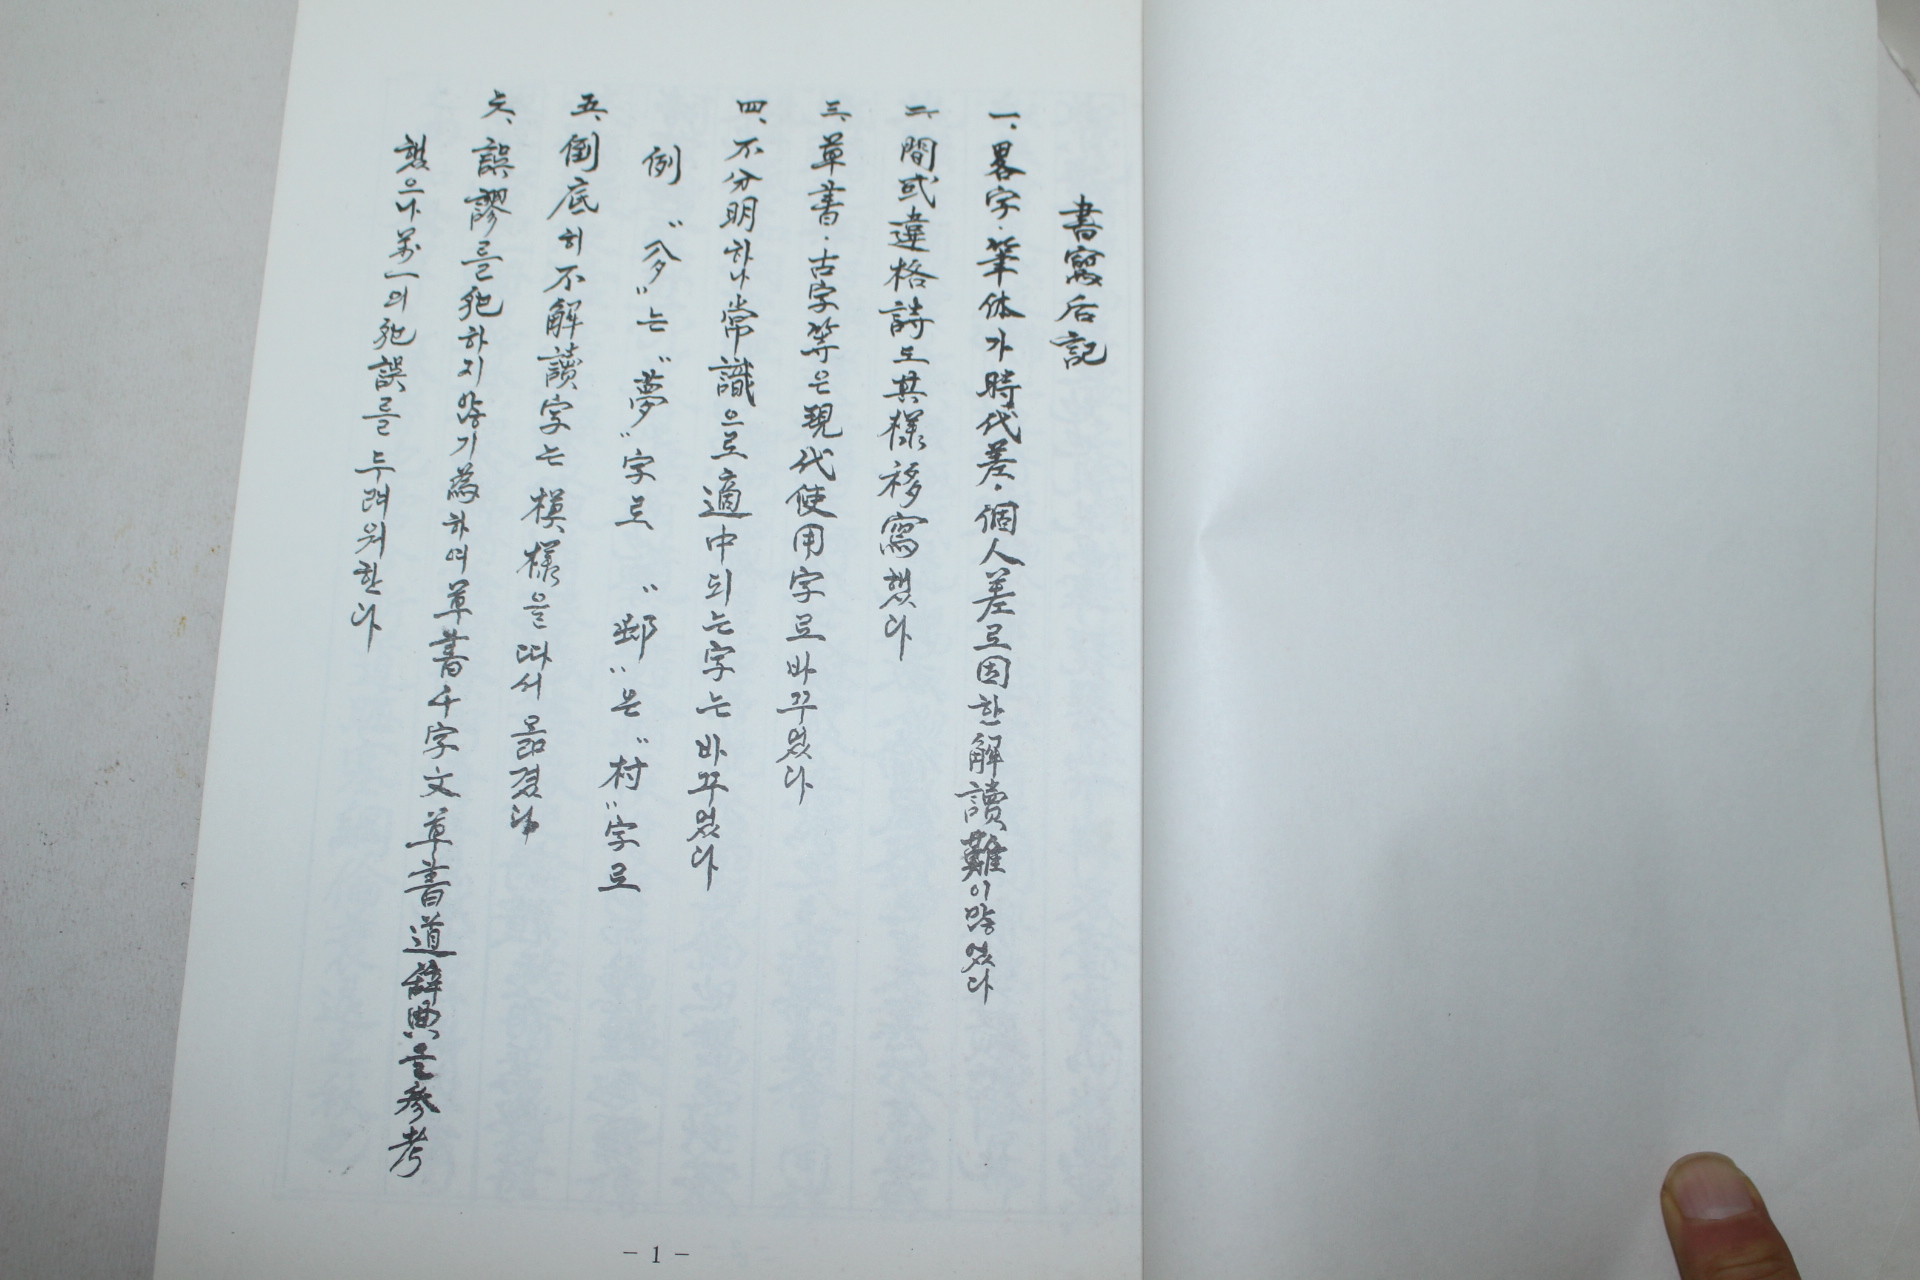 書寫后記
一、畧字·筆体가 時代差·個人差로 因한 解讀難이 많었다
二、間或 違格詩도 其樣 移寫했다
三、草書·古字等은 現代使用字로 바꾸었다
四、不分明하나 常識으로 適中되는 字는 바꾸었다
例 "㒱"는 "夢"字로 "邨"은 "村"字로
五、倒底히 不解讀字는 模樣을 따서 옮겼다
六、誤謬를 犯하지 않기 爲하여 草書千字文 草書道辭典을 參考
했으나 萬一의 犯誤를 두려워한다
- 1 -